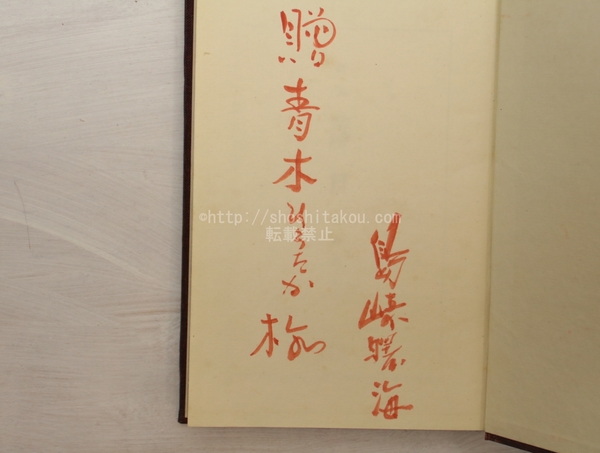 島崎曙海
贈青木ひろたか様
©http://shoshitakou.com
転載禁止